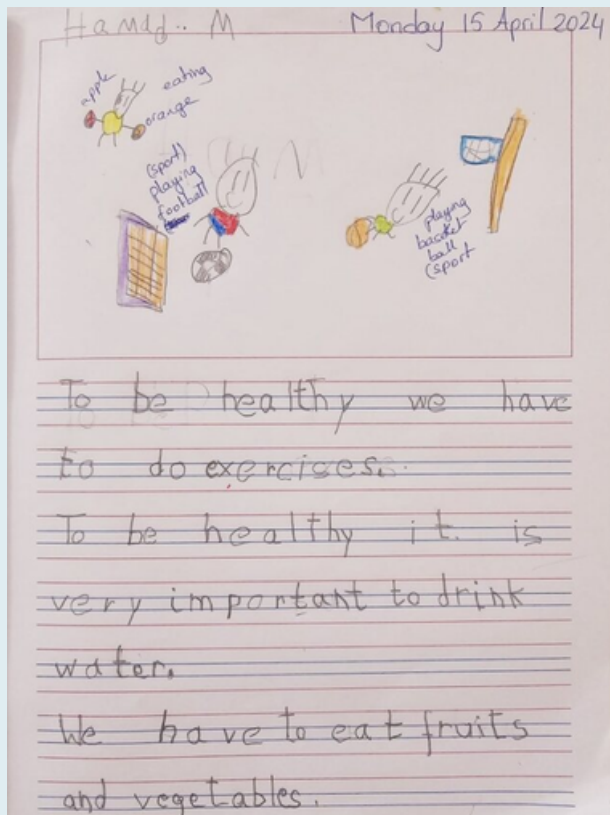 Hamad.. M
Monday 15 April 2024
apple
eating
orange
(sport)
playing
football
playing
basket
ball
(sport
To be healthy we have
to do exercises.
To be healthy it is
very important to drink
water.
We have to eat fruits
and vegetables.